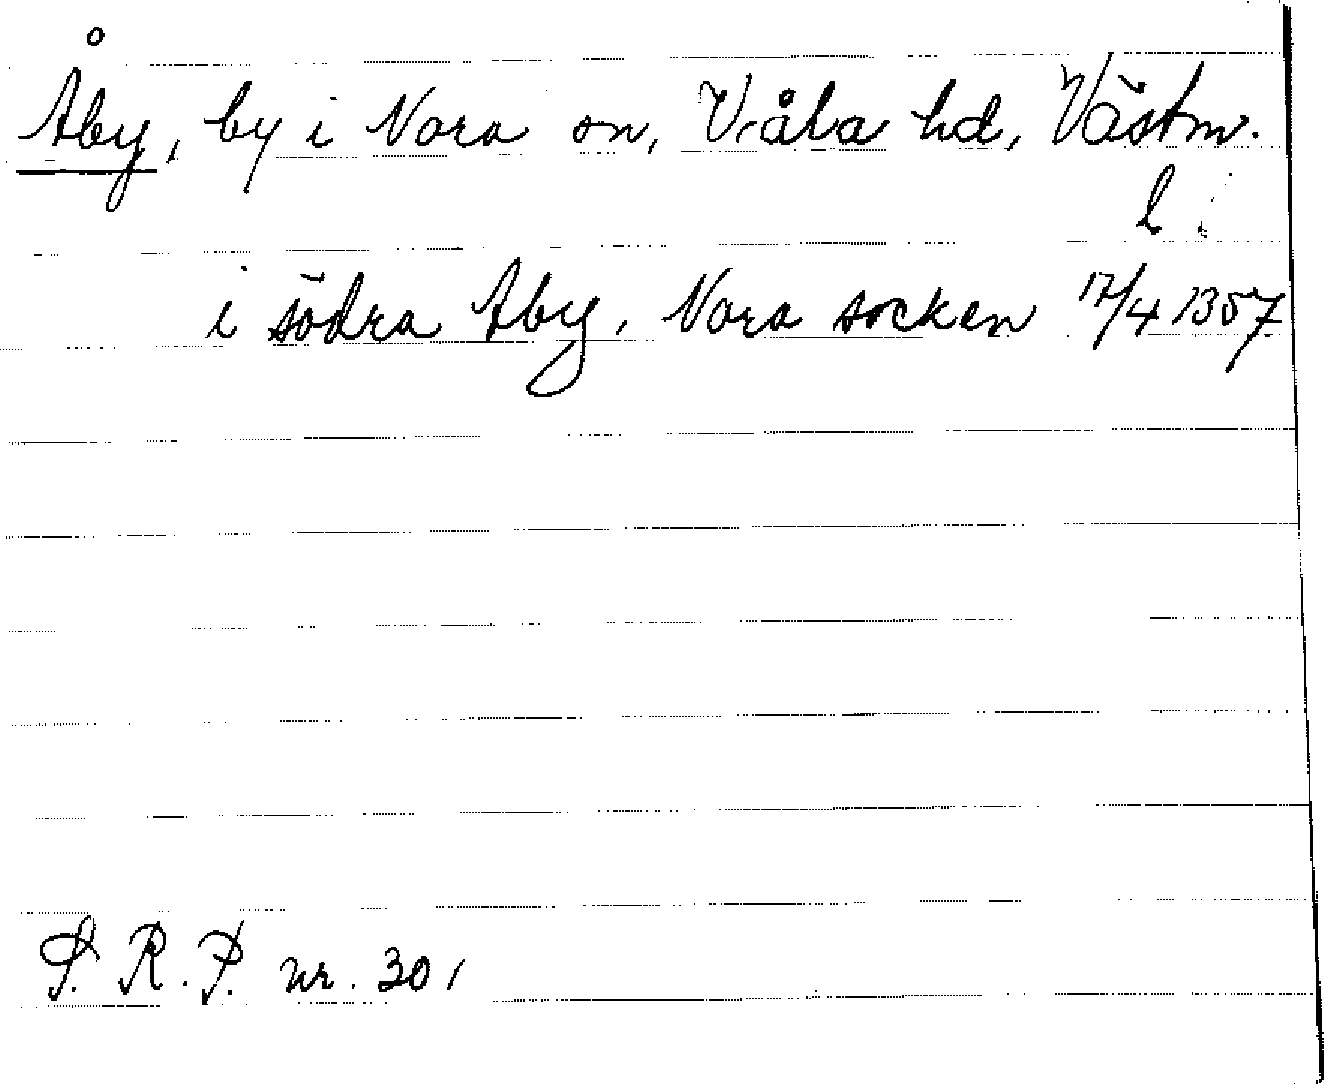 Åby, by i Nora sn, Våla hd, Västm.
l.
i södra Åby, Nora socken 17/4 1357
S. R. P. nr. 301